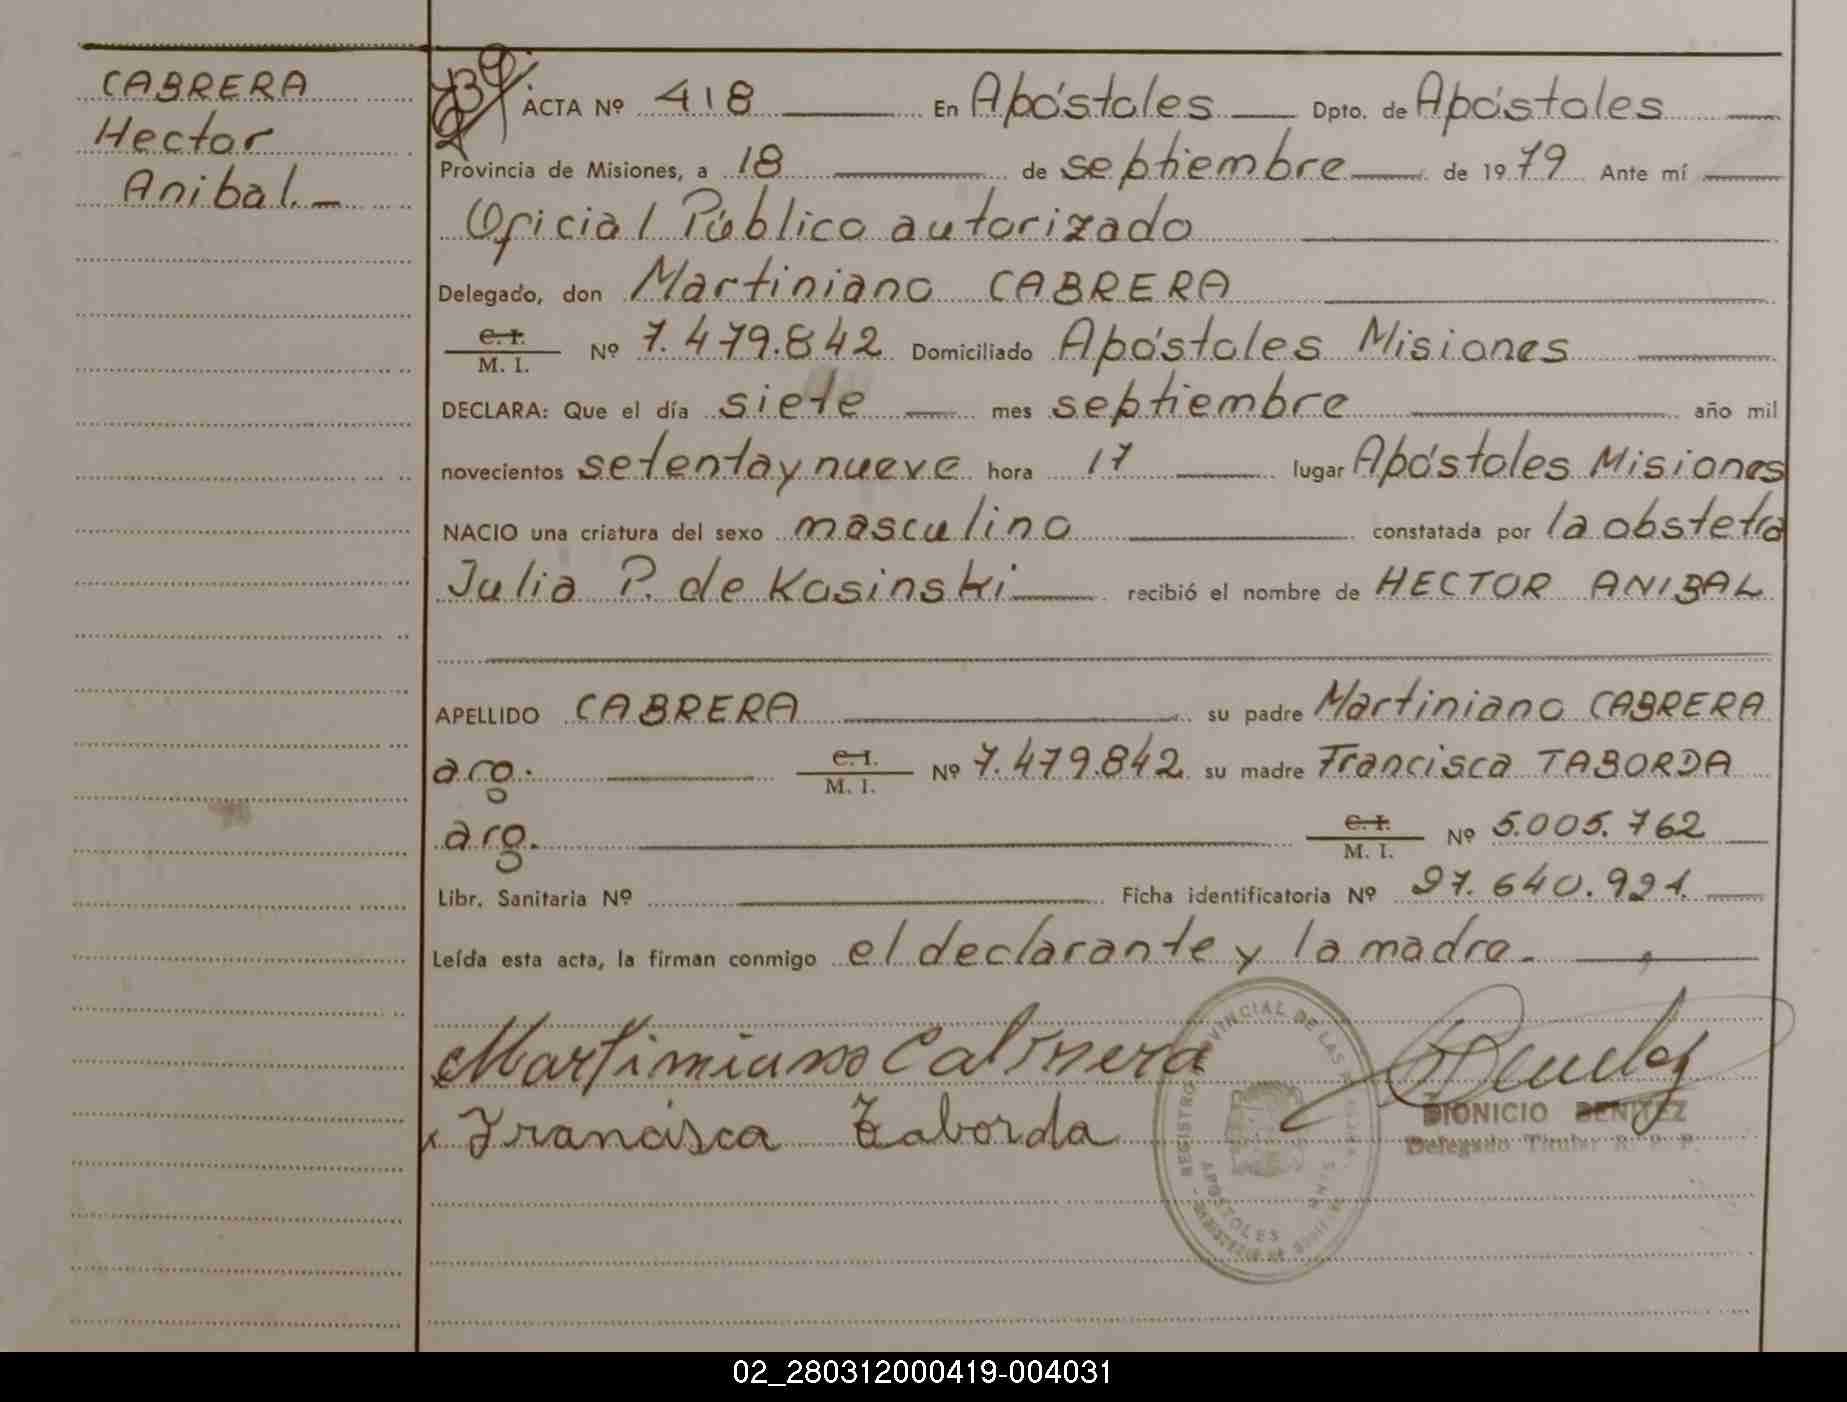 CABRERA
Hector
Anibal.
ACTA Nº 418 En Apóstoles Dpto. de Apóstoles
Provincia de Misiones, a 18 de septiembre de 1979 Ante mí
Oficial Público autorizado
Delegado, don Martiniano CABRERA
C. I.
M. I. Nº 7.479.842 Domiciliado Apóstoles Misiones
DECLARA: Que el día siete mes septiembre año mil
novecientos setenta y nueve hora 17 lugar Apóstoles Misiones
NACIO una criatura del sexo masculino constatada por la obstetra
Julia P. de Kasinski recibió el nombre de HECTOR ANIBAL
APELLIDO CABRERA su padre Martiniano CABRERA
arg. C. I. M. I. Nº 7.479.842 su madre Francisca TABORDA
arg. C. I. M. I. Nº 5.005.762
Libr. Sanitaria Nº Ficha identificatoria Nº 27.640.921.
Leída esta acta, la firman conmigo el declarante y la madre.
Martimiano Cabrera
Francisca Taborda
REGISTRO PROVINCIAL DE LAS
APOSTOLES
DIONICIO BENITEZ
Delegado Titular R. P. P.
02_280312000419-004031